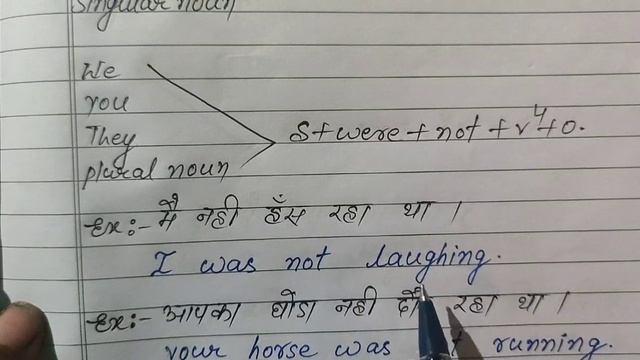 Singular noun
We
you
They
plural noun
S+were+not+v4+o.
Ex:- मै नही हँस रहा था ।
I was not laughing.
Ex:- आपका घोडा नही रहा था ।
your horse was running.